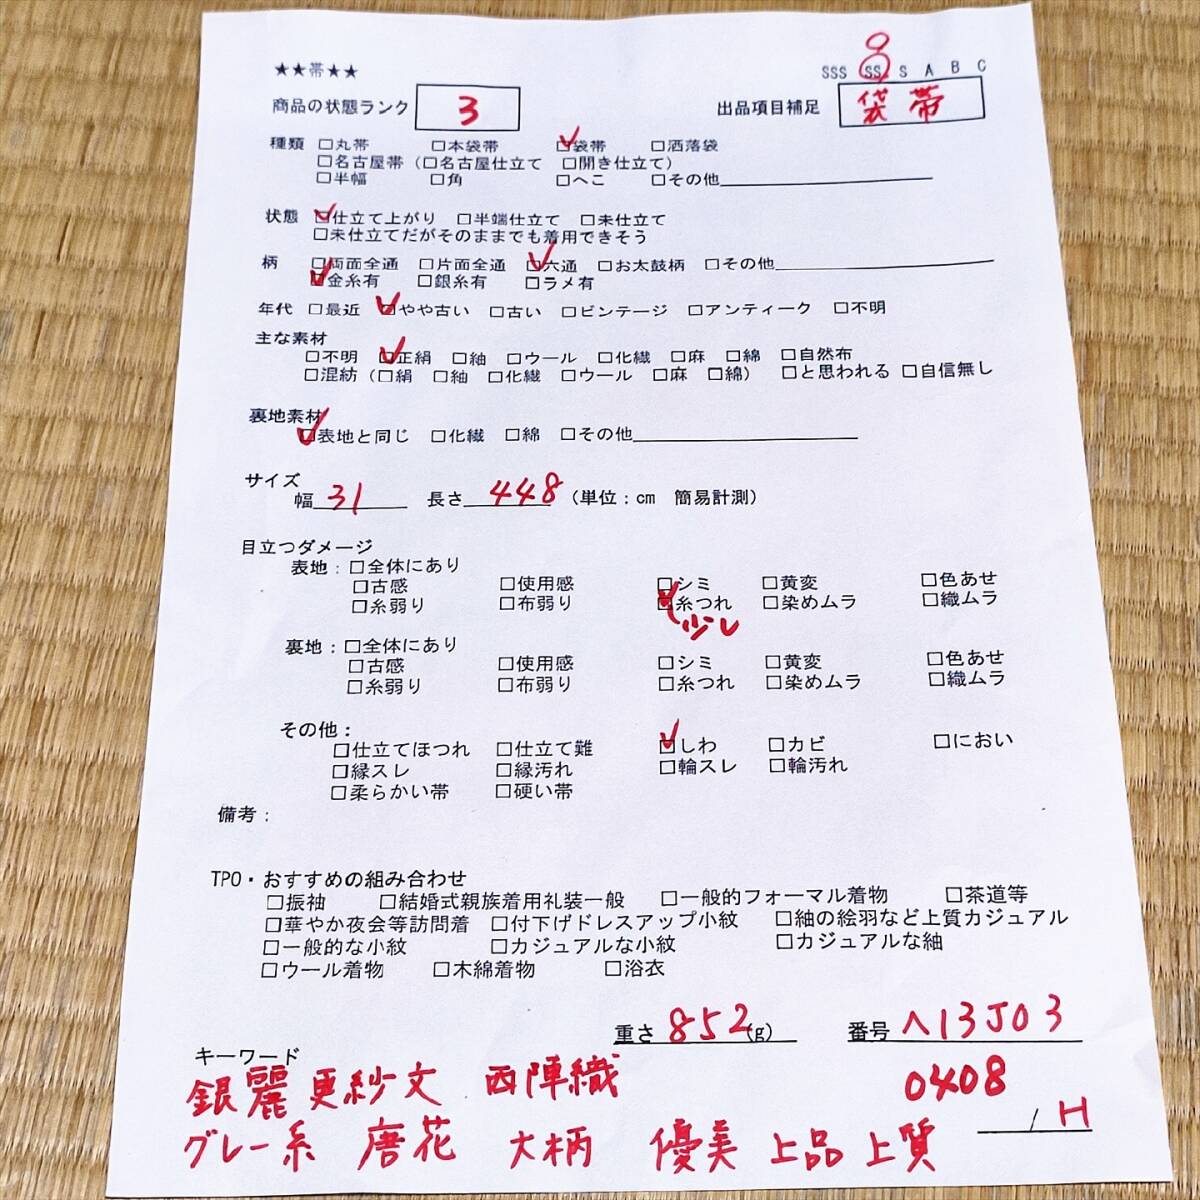 ★★帯★★ SSS SS S A B C
商品の状態ランク 3 出品項目補足 袋帯
種類 □丸帯 □本袋帯 ☑袋帯 □洒落袋
□名古屋帯（□名古屋仕立て □開き仕立て）
□半幅 □角 □へこ □その他
状態 ☑仕立て上がり □半端仕立て □未仕立て
□未仕立てだがそのままでも着用できそう
柄 □両面全通 □片面全通 ☑六通 □お太鼓柄 □その他
☑金糸有 □銀糸有 □ラメ有
年代 □最近 ☑やや古い □古い □ビンテージ □アンティーク □不明
主な素材
□不明 ☑正絹 □紬 □ウール □化繊 □麻 □綿 □自然布
□混紡（□絹 □紬 □化繊 □ウール □麻 □綿） □と思われる □自信無し
裏地素材
☑表地と同じ □化繊 □綿 □その他
サイズ
幅 31 長さ 448 （単位：cm 簡易計測）
目立つダメージ
表地：□全体にあり
□古感 □使用感 □シミ □黄変 □色あせ
□糸弱り □布弱り ☑糸つれ □染めムラ □織ムラ
少し
裏地：□全体にあり
□古感 □使用感 □シミ □黄変 □色あせ
□糸弱り □布弱り □糸つれ □染めムラ □織ムラ
その他：
□仕立てほつれ □仕立て難 ☑しわ □カビ □におい
□縁スレ □縁汚れ □輪スレ □輪汚れ
□柔らかい帯 □硬い帯
備考：
TPO・おすすめの組み合わせ
□振袖 □結婚式親族着用礼装一般 □一般的フォーマル着物 □茶道等
□華やか夜会等訪問着 □付下げドレスアップ小紋 □紬の絵羽など上質カジュアル
□一般的な小紋 □カジュアルな小紋 □カジュアルな紬
□ウール着物 □木綿着物 □浴衣
重さ 852 (g) 番号 ヘ13J03
キーワード
銀麗 更紗文 西陣織 0408
/H
グレー系 唐花 大柄 優美 上品 上質